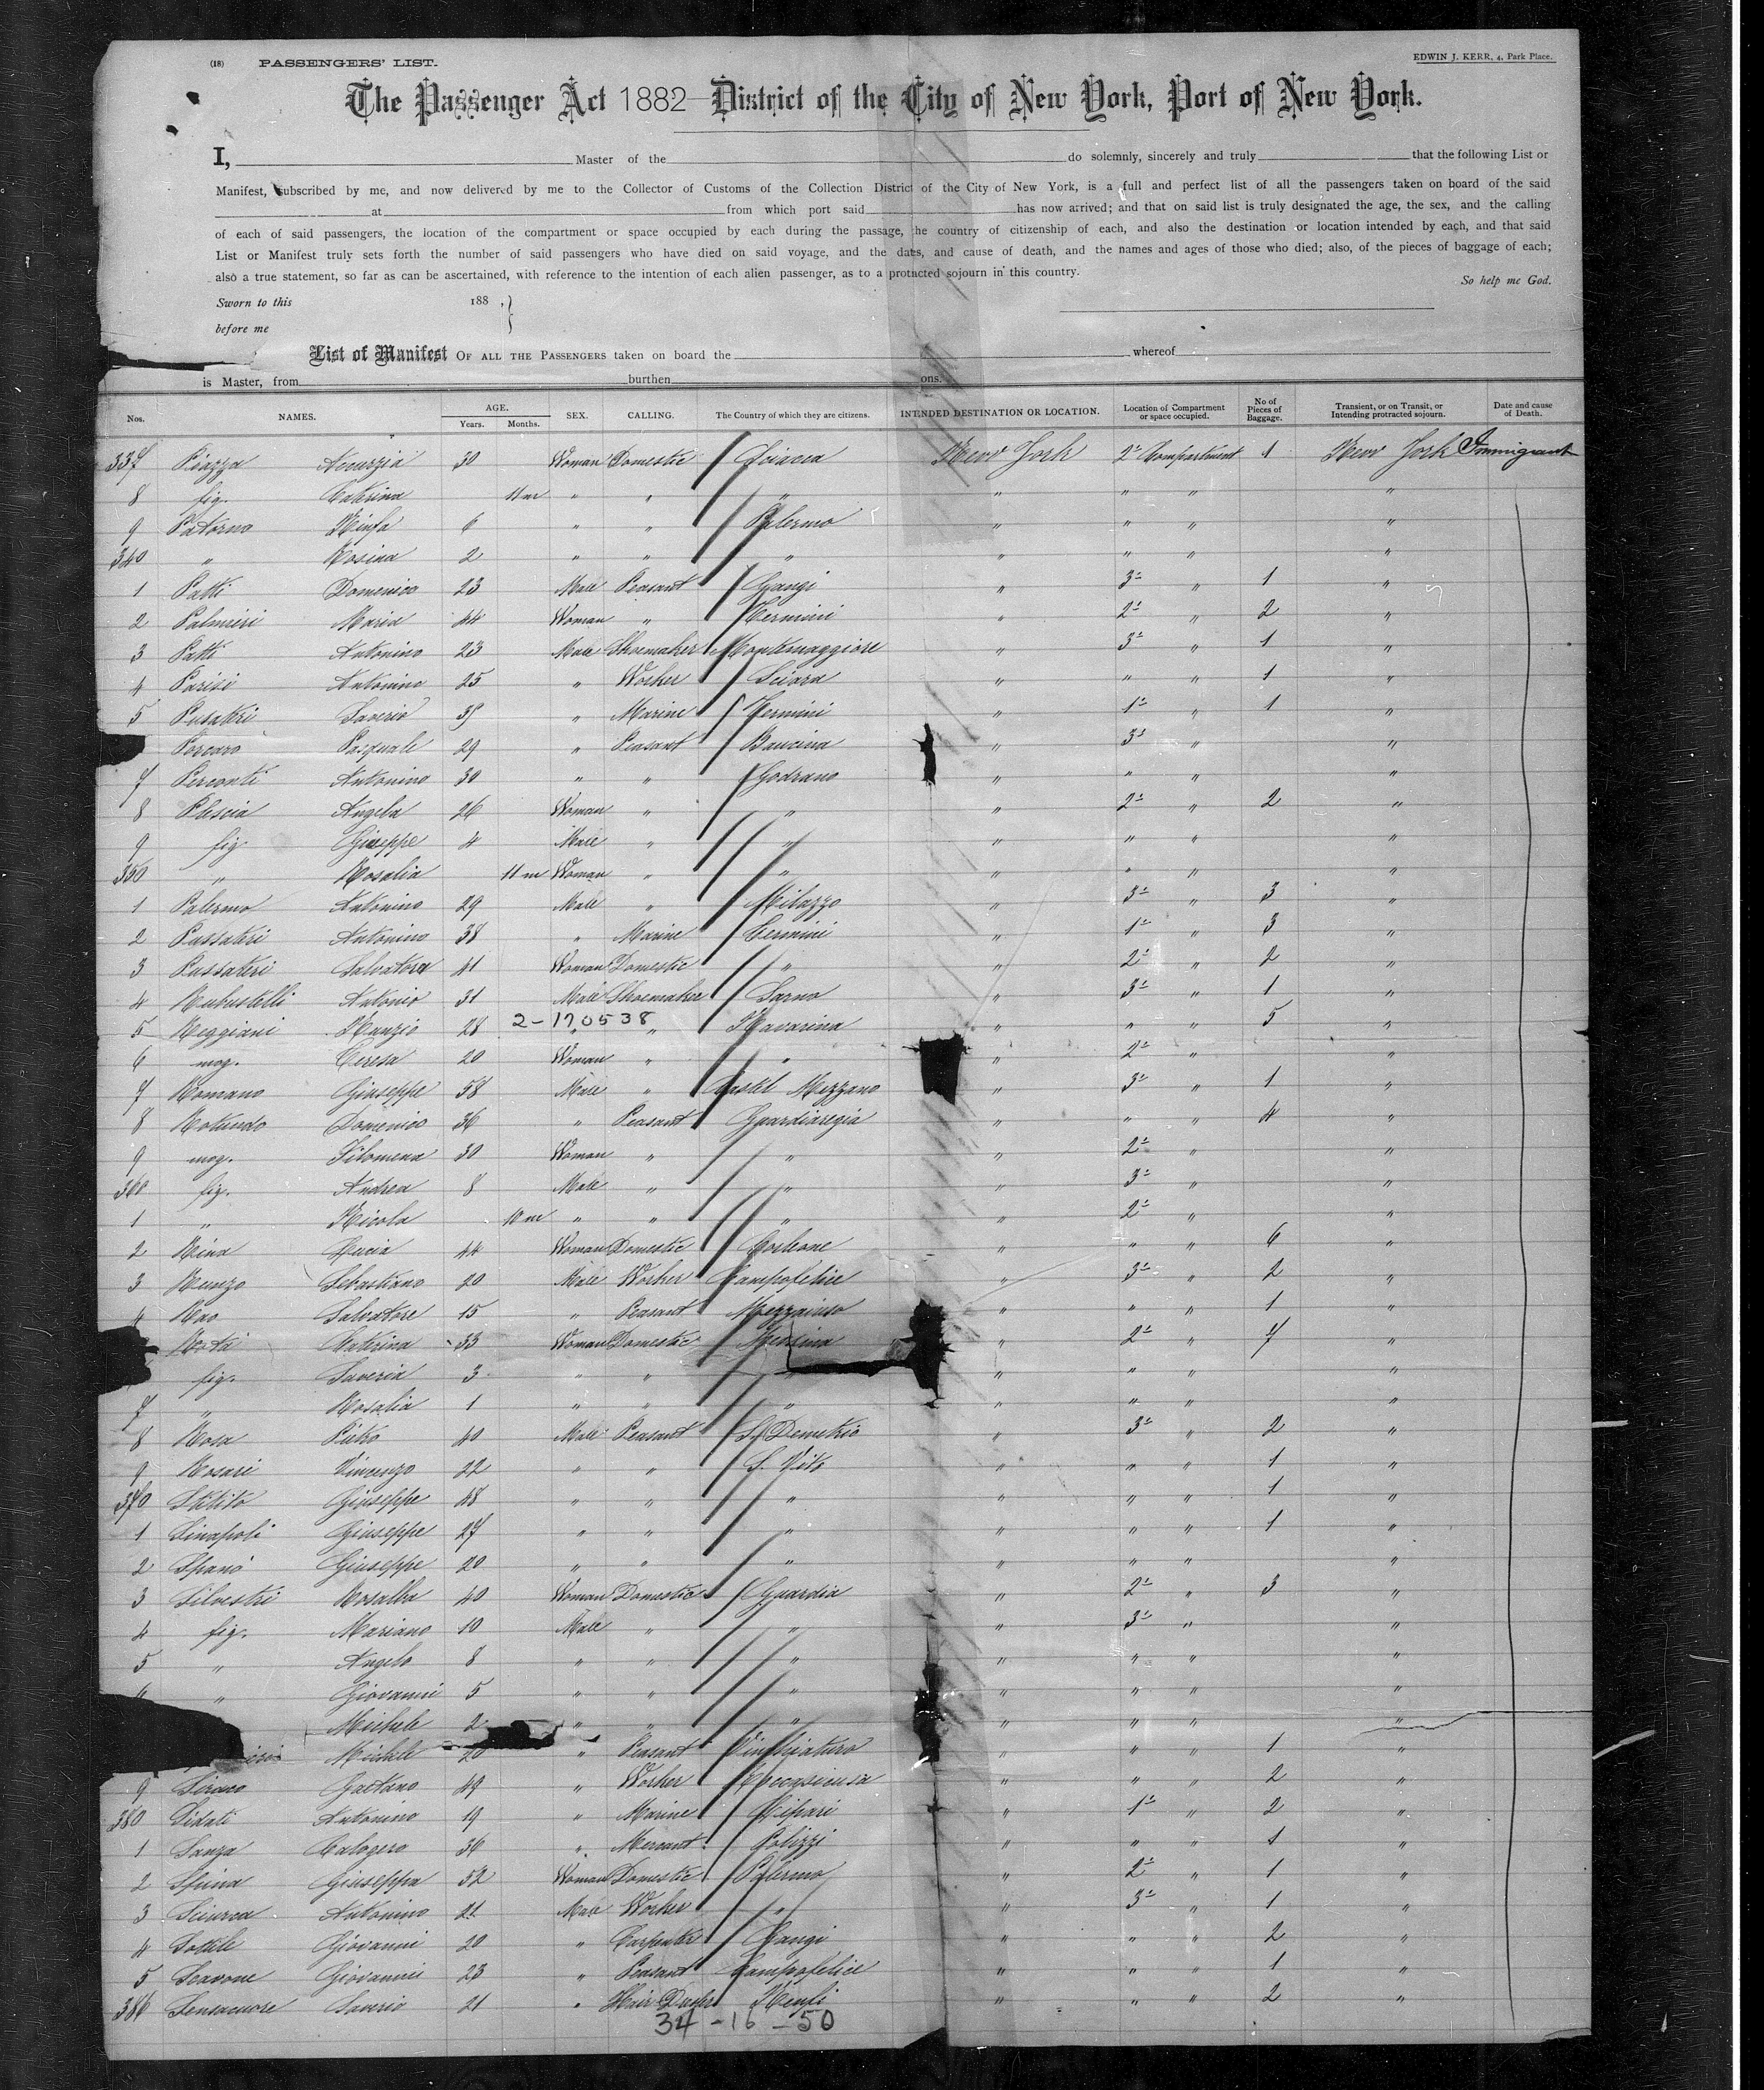 (18) PASSENGERS' LIST. EDWIN J. KERR, 4, Park Place.
The Passenger Act 1882 District of the City of New York, Port of New York.
I, Master of the do solemnly, sincerely and truly that the following List or
Manifest, subscribed by me, and now delivered by me to the Collector of Customs of the Collection District of the City of New York, is a full and perfect list of all the passengers taken on board of the said
at from which port said has now arrived; and that on said list is truly designated the age, the sex, and the calling
of each of said passengers, the location of the compartment or space occupied by each during the passage, the country of citizenship of each, and also the destination or location intended by each, and that said
List or Manifest truly sets forth the number of said passengers who have died on said voyage, and the dates, and cause of death, and the names and ages of those who died; also, of the pieces of baggage of each;
also a true statement, so far as can be ascertained, with reference to the intention of each alien passenger, as to a protracted sojourn in this country. So help me God.
Sworn to this 188 ,
before me
List of Manifest OF ALL THE PASSENGERS taken on board the whereof
is Master, from burthen ons.
Nos. NAMES. AGE. Years. Months. SEX. CALLING. The Country of which they are citizens. INTENDED DESTINATION OR LOCATION. Location of Compartment or space occupied. No of Pieces of Baggage. Transient, or on Transit, or Intending protracted sojourn. Date and cause of Death.
337 Piazza Accurzia 30 Woman Domestic Sciacca New York 2a Compartment 1 New York Immigrant
8 fig. Caterina 11 m " " " " " " "
9 Patorno Ninfa 6 " " Palermo " " " "
340 " Rosina 2 " " " " " " "
1 Patti Domenico 23 Male Peasant Gangi " 3a " 1 "
2 Palmieri Maria 44 Woman " Termini " 2a " 2 "
3 Patti Antonino 23 Male Shoemaker Montemaggiore " 3a " 1 "
4 Parisi Antonino 25 " Worker Sciara " " " 1 "
5 Pusateri Saverio 35 " Marine Termini " 1a " 1 "
Porcaro Pasquale 29 " Peasant Baucina " 3a " "
7 Perconti Antonino 30 " " Godrano " " " "
8 Plescia Angela 26 Woman " " " 2a " 2 "
9 fig. Giuseppe 4 Male " " " " " "
350 " Rosalia 11 m Woman " " " " " "
1 Palermo Antonino 29 Male " Milazzo " 3a " 3 "
2 Passateri Antonino 38 " Marine Termini " 1a " 3 "
3 Passateri Salvatora 41 Woman Domestic " " 2a " 2 "
4 Rubustelli Antonio 31 Male Shoemaker Sarno " 3a " 1 "
5 Reggiani Nunzio 28 2-170538 " " Navarina " " " 5 "
6 mog. Teresa 20 Woman " " " 2a " "
7 Romano Giuseppe 58 Male " Castel Mezzano " 3a " 1 "
8 Rotundo Domenico 36 " Peasant Guardiaregia " " " 4 "
9 mog. Filomena 30 Woman " " " 2a " "
360 fig. Andrea 8 Male " " " 3a " "
1 " Nicola 10 m " " " " 2a " "
2 Rina Lucia 44 Woman Domestic Corleone " " " 6 "
3 Renzo Sebastiano 20 Male Worker Campofelice " 3a " 2 "
4 Rao Salvatore 15 " Peasant Mezzojuso " " " 1 "
Rota Caterina 33 Woman Domestic Messina " 2a " 7 "
fig. Saveria 3 " " " " " "
7 " Rosalia 1 " " " " " " "
8 Rosa Pietro 40 Male Peasant S. Demetrio " 3a " 2 "
9 Rosari Vincenzo 22 " " S. Vito " " " 1 "
370 Stilito Giuseppe 48 " " " " " " 1 "
1 Sinapoli Giuseppe 27 " " " " " " 1 "
2 Spanò Giuseppe 20 " " " " " " "
3 Silvestri Rosalba 40 Woman Domestic Guardia " 2a " 3 "
4 fig. Mariano 10 Male " " " 3a " "
5 " Angelo 8 " " " " " " "
6 " Giovanni 5 " " " " " " "
Michele 2 " " " " " " "
Michele 20 " Peasant Vinchiaturo " " " 1 "
9 Siraco Gaetano 49 " Worker Roccasicusa " " " 2 "
380 Sidoti Antonino 19 " Marine Lipari " 1a " 2 "
1 Sanza Calogero 36 " Mercant Polizzi " " " 1 "
2 Spina Giuseppa 52 Woman Domestic Palermo " 2a " 1 "
3 Sciurca Antonino 21 Male Worker " " 3a " 1 "
4 Sottile Giovanni 20 " Carpenter Gangi " " " 2 "
5 Scavone Giovanni 23 " Peasant Campofelice " " " 1 "
386 Sensamore Saverio 21 " Hair Dresser Menfi " " " 2 "
34 - 16 - 50